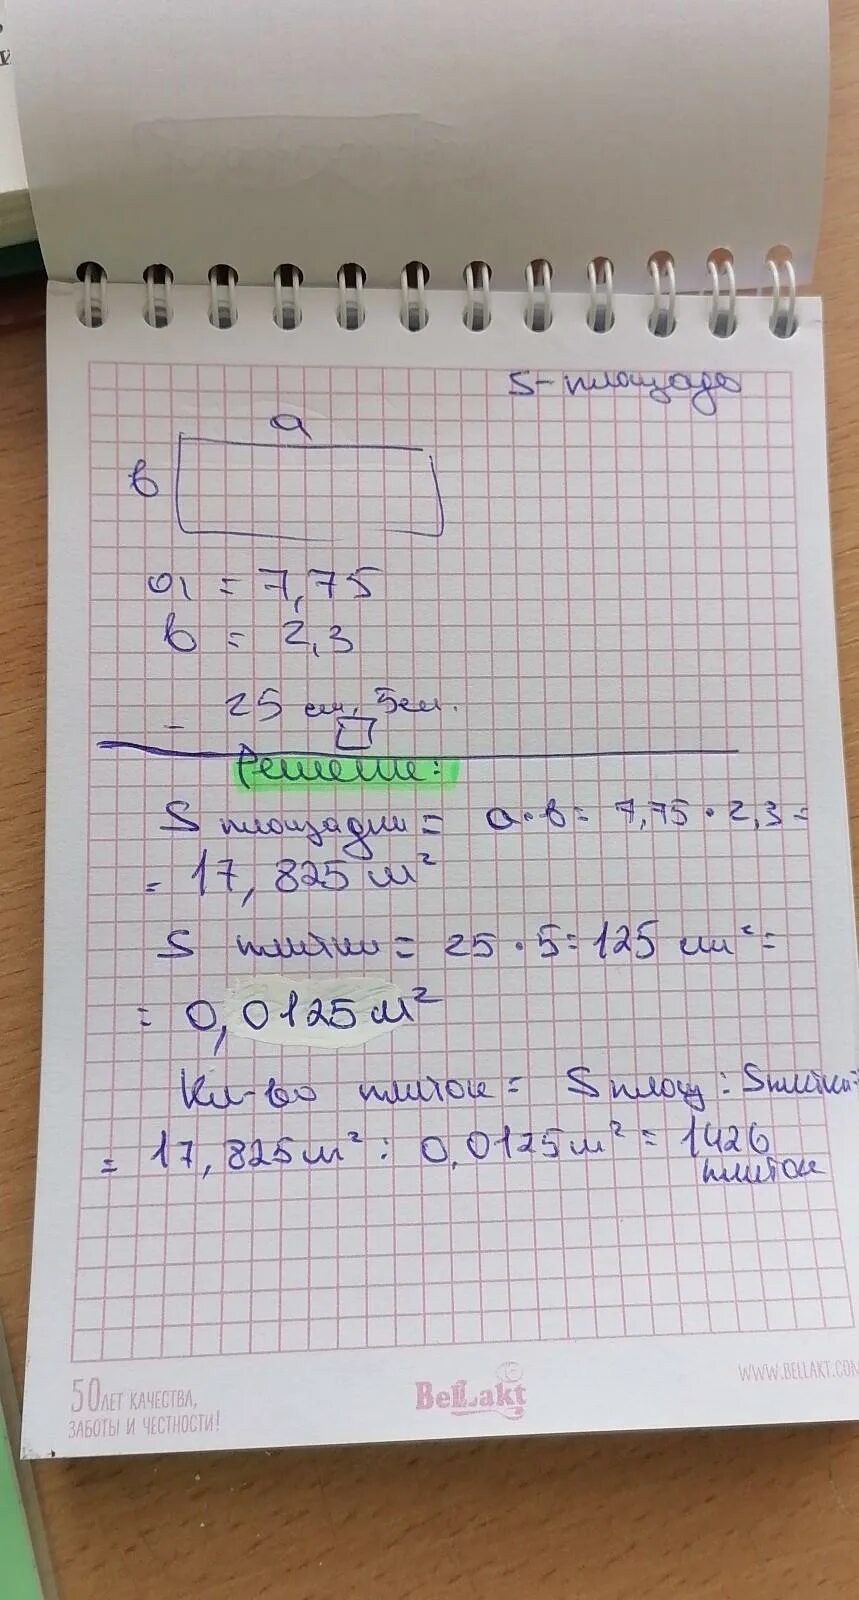 S - площадь
a
в
a = 7,75
в = 2,3
- 25 см, 5см.
Решение:
S площадки = a · в = 7,75 · 2,3 =
= 17,825 м²
S плитки = 25 · 5 = 125 см² =
= 0,0125 м²
Кл-во плиток = S площ : S плитки =
= 17,825 м² : 0,0125 м² = 1426
плиток
50 ЛЕТ КАЧЕСТВА,
ЗАБОТЫ И ЧЕСТНОСТИ!
BeLLakt
WWW.BELLAKT.COM